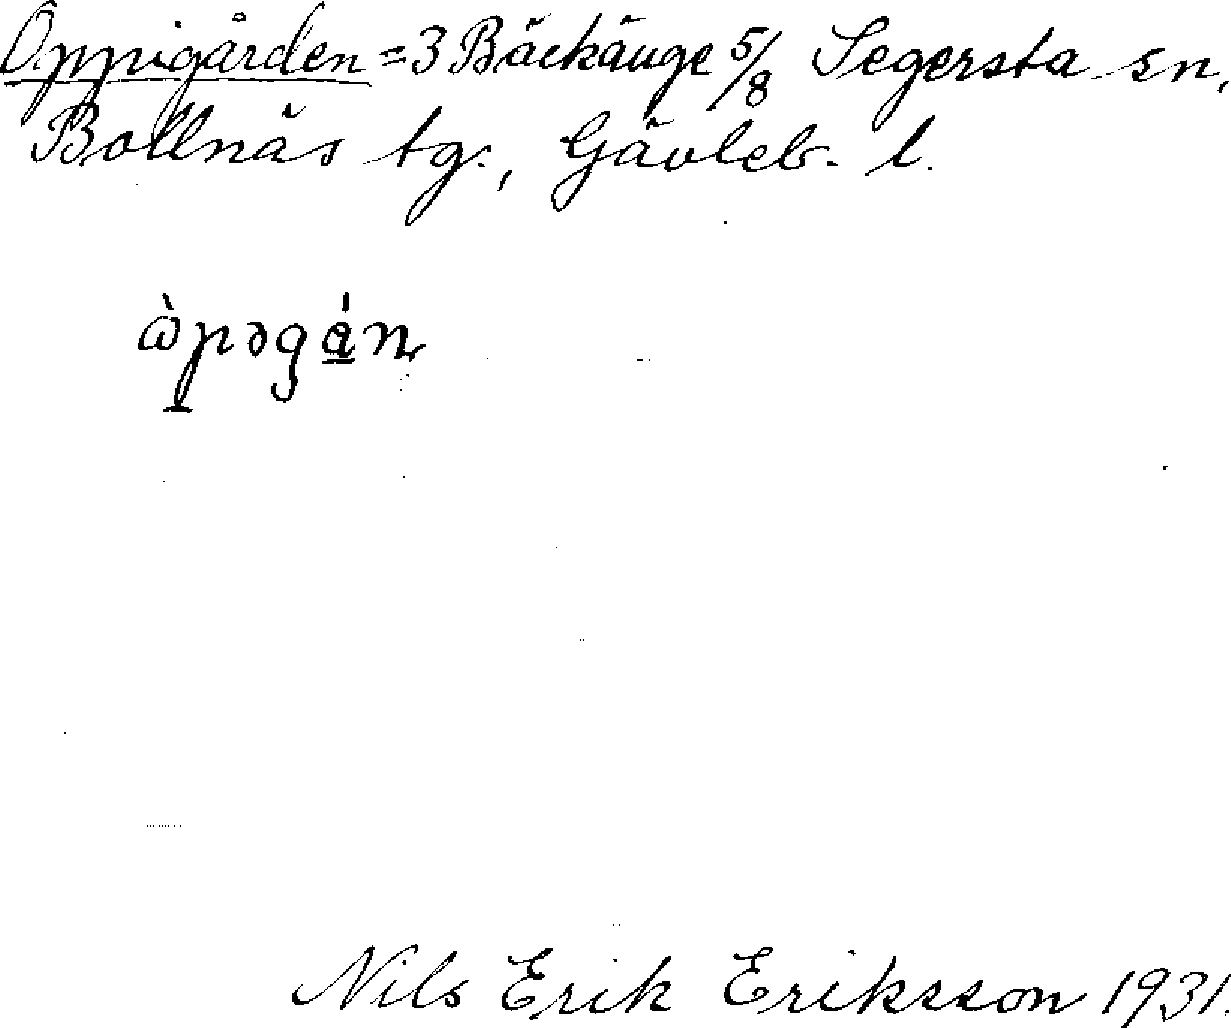 Oppigården = 3 Bäckänge 5/8 Segersta sn,
Bollnäs tg., Gävleb. l.
ὼpəgán
Nils Erik Eriksson 1931